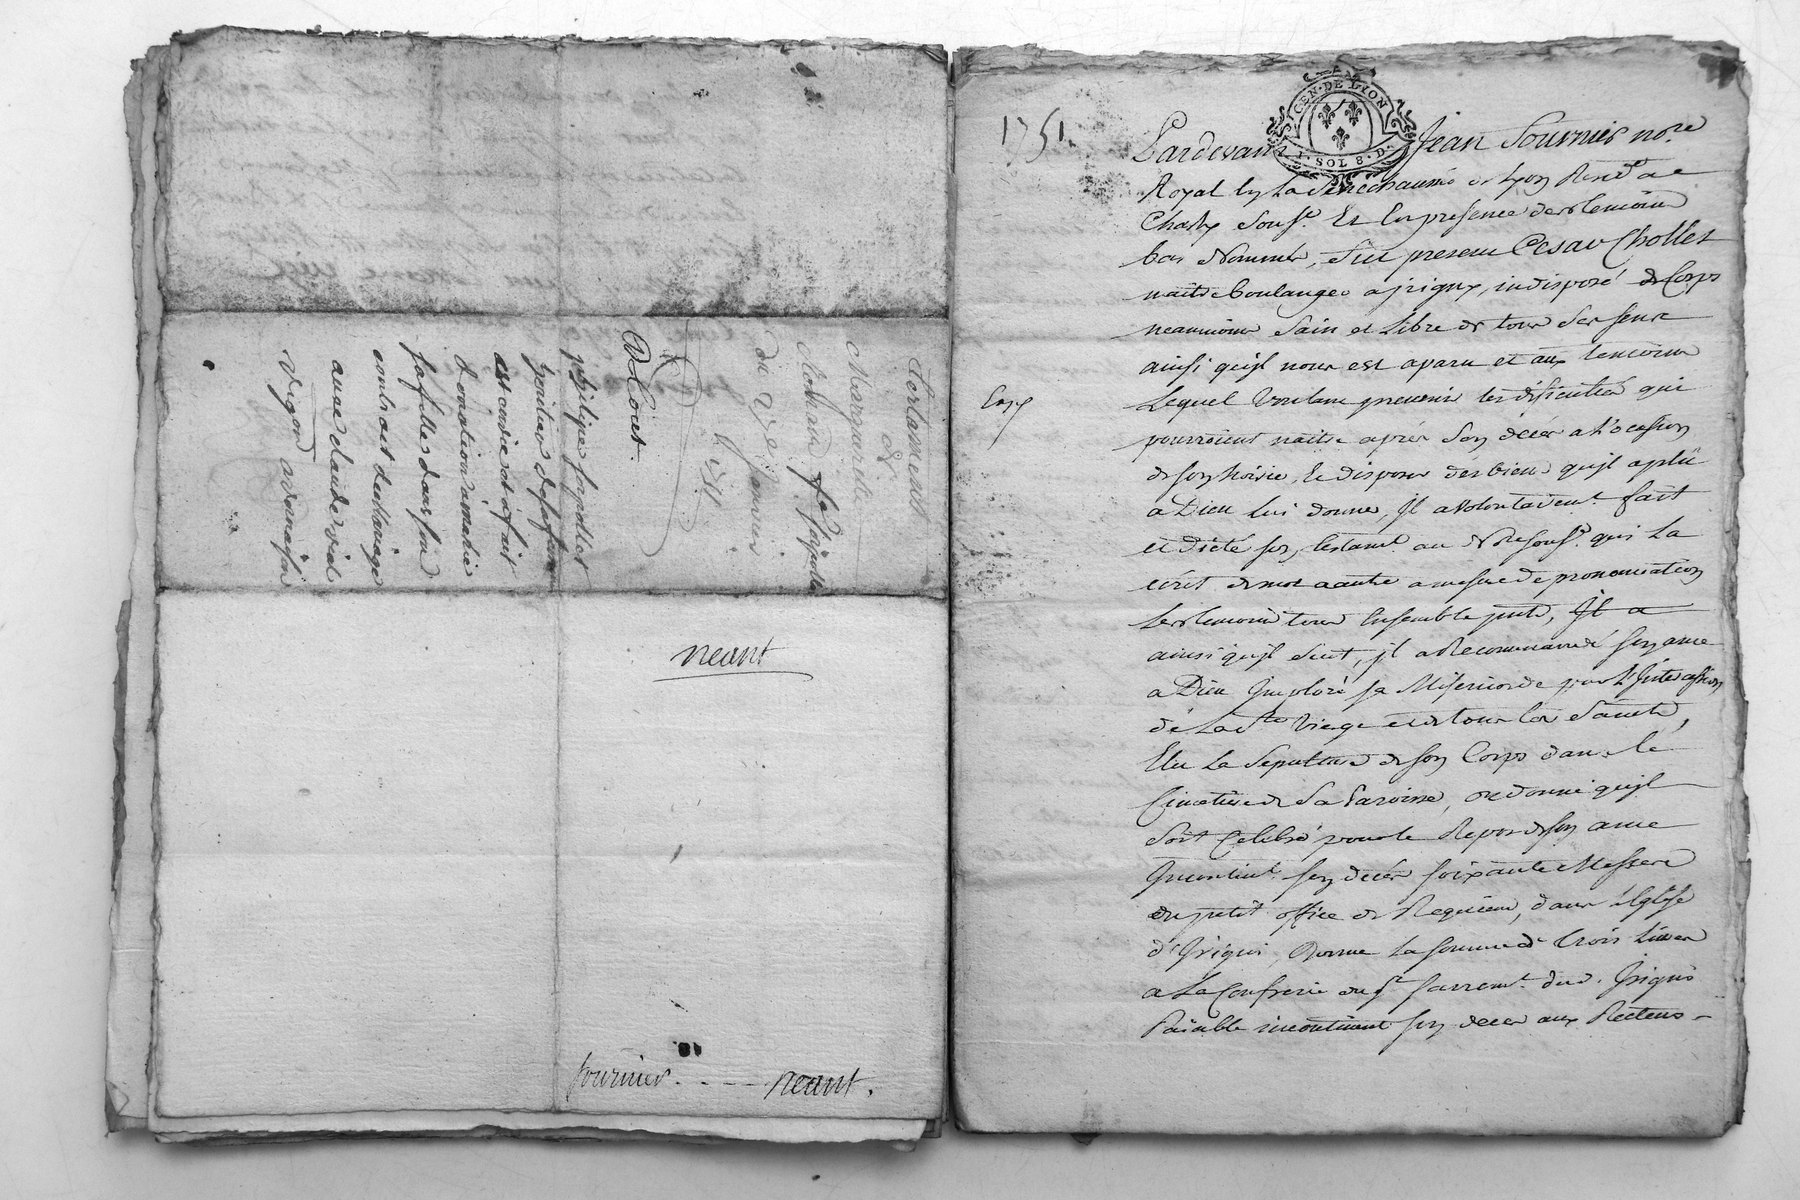 Testament
de
Marguerite
Mohan fe forqullt
du 27e Janvier
1751
Dlouet.
philipe
heritier de sa femme
est
donation
sa fille dans son
contract de mariage
avec claude vial
vigon
neant
fournier. - - - - neant.
GEN · DE LYON
1 · SOL 8 · D ·
1751.
Pardevant Jean Fournier nore.
Royal en La Senechaussé de Lyon Resid a
Charly Sousé. Et En presence des temoins
bas Nommés, fut present Cesar Chollet
maitre boulanger a jrigny, indisposé de Corps
neanmoins Sain et Libre de tous Ses sens
ainsi quil nous est aparu et aux temoins
Exp
Lequel Voulant prevenir les dificultés qui
pourroient naitre après Son deces a L'ocasion
de son hoirie, et disposer des biens quil a plû
a Dieu Lui donner, Il a Volontairemt. fait
et dicté son testamt. au Nore sousé. qui La
ecrit de mot a autre a mesure de prononciation
Les temoins tous Ensemble
ainsi quil Suit, il a Recommandé son ame
a Dieu Imploré sa Misericorde par L'Intercession
de La Ste Vierge et de tous Les Saints,
Elu La Sepulture de son Corps dans le
Cimetiere de Sa Paroisse, ordonné quil
Soit Celebré pour le Repos de son ame
Incontint. son deces soixante Messes
du petit office de Requiem, dans L'Eglise
d'Irigni, Donne La somme de trois Livres
a La Confrerie du St. Sacremt. dud. Irigni
Paiable incontinent son deces aux Recteurs -